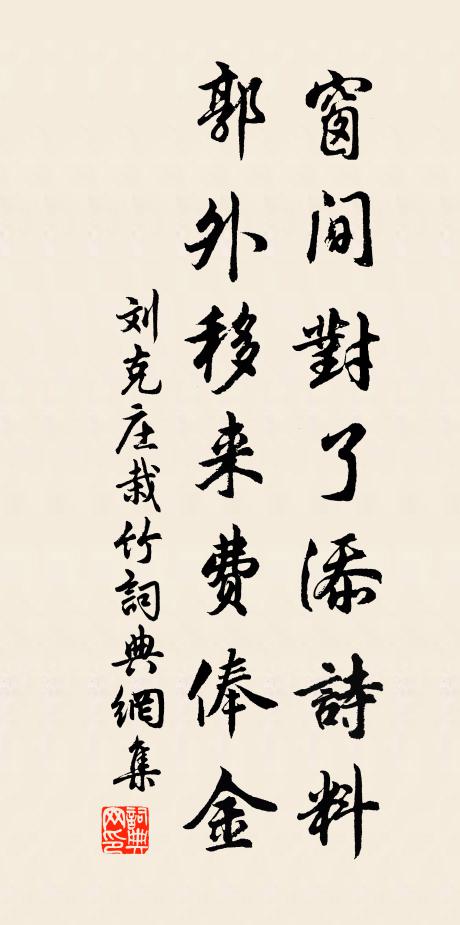 窗间對了添詩料
郭外移来費俸金
刘克庄栽竹詞典網集
詞典网印